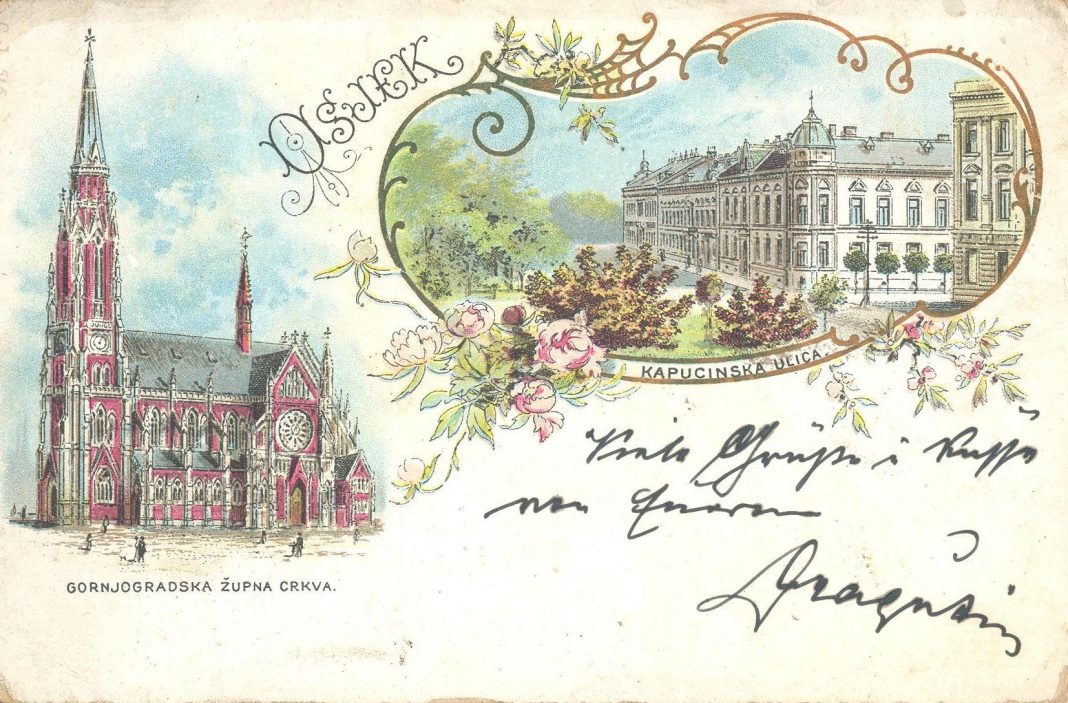 OSJEK
KAPUCINSKA ULICA.
GORNJOGRADSKA ŽUPNA CRKVA.
Viele Grüße i Küsse
von Eueren
Dragutin